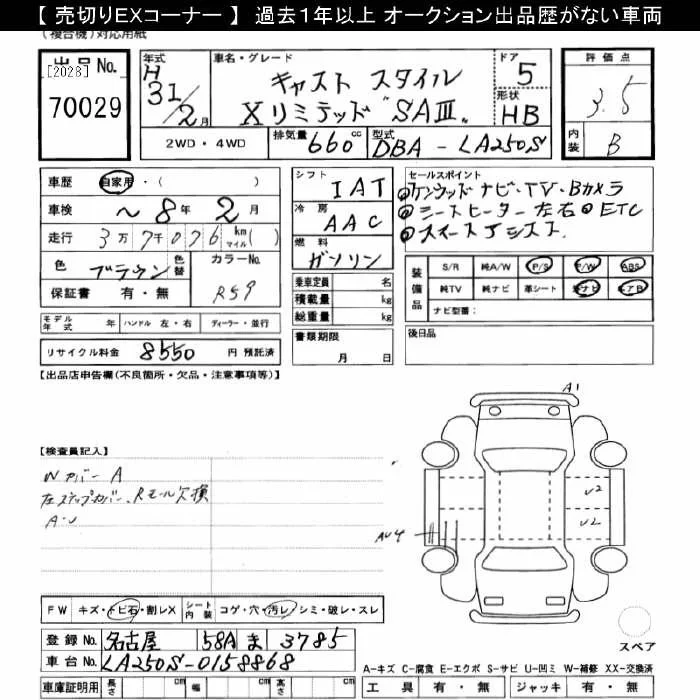 【 売切りEXコーナー 】 過去1年以上 オークション出品歴がない車両
(複合機)対応用紙
出品No.
[2028]
70029
年式 H 31/2月
車名・グレード キャスト スタイル
Xリミテッド"SAⅢ"
ドア 5
形状 HB
評価点 3.5
内装 B
2WD・4WD 排気量 660cc 型式 DBA-LA250S
車歴 自家用・( )
車検 ~8年2月
走行 3万7千076 km マイル( )
色 ブラウン 色替 カラーNo. R59
保証書 有・無
シフト IAT
冷房 AAC
燃料 ガソリン
乗車定員 名
積載量 kg
総重量 kg
書類期限
月 日
セールスポイント
ケンウッドナビ・TV・Bカメラ
シートヒーター左右 ETC
スマートアシスト
装備品 S/R 純A/W P/S P/W ABS
純TV 純ナビ 革シート ナビ エアB
ナビ型番:
後日品
モデル年式 年 ハンドル 左・右 ディーラー・並行
リサイクル料金 8550 円 預託済
【出品店申告欄(不良箇所・欠品・注意事項等)】
【検査員記入】
Wカバー A
左ステップカバー、Rモール欠損
A・U
A1
U2
U2
AU4
スペア
FW キズ・トビ石・割レX シート内装 コゲ・穴・汚レ・シミ・破レ・スレ
登録No. 名古屋 58A ま 3785
車台No. LA250S-0158868
車庫証明用 長さ cm 幅 cm 高さ cm
A-キズ C-腐食 E-エクボ S-サビ U-凹ミ W-補修 XX-交換済
工具 有・無 ジャッキ 有・無